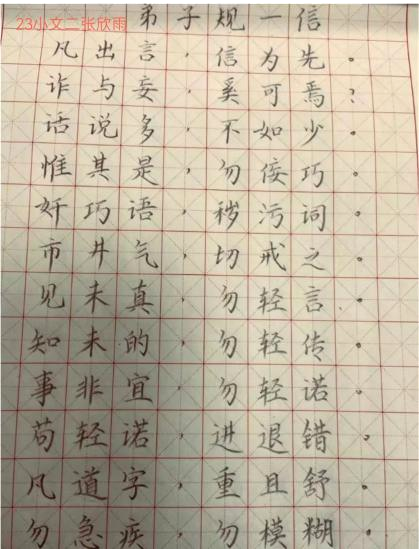 23小文二张欣雨
弟子规一信
凡出言，信为先。
诈与妄，奚可焉？
话说多，不如少。
惟其是，勿佞巧
奸巧语，秽污词
市井气，切戒之
见未真，勿轻言。
知未的，勿轻传。
事非宜，勿轻诺
苟轻诺，进退错。
凡道字，重且舒。
勿急疾，勿模糊。